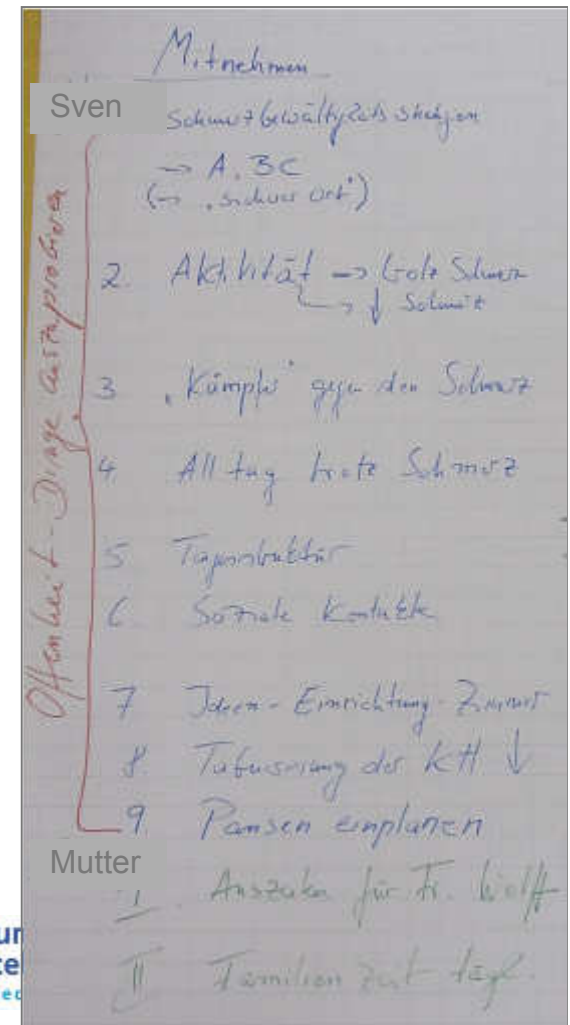 Mitnehmen
Sven
Schmerzbewältigungsstrategien
→ A, BC
(→ "sicherer Ort")
2. Aktivität → trotz Schmerz
→ ↓ Schmerz
3 "Kämpfer" gegen den Schmerz
4. Alltag trotz Schmerz
5 Tagesstruktur
6. Soziale Kontakte
7 Ideen - Einrichtung - Zimmer
8. der KH ↓
9. Pausen einplanen
Offenheit - Dinge auszuprobieren
Mutter
I. Auszeiten für Fr. Wolff
II Familienzeit tägl.